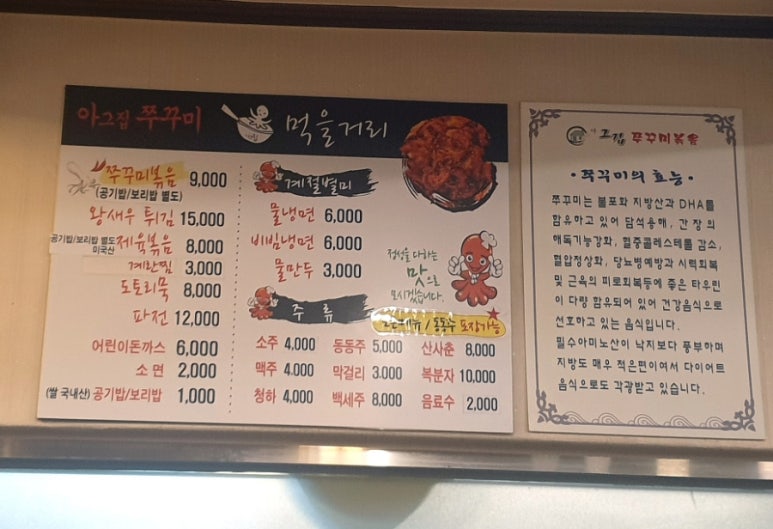 아그집 쭈꾸미
먹을거리
쭈꾸미볶음 9,000
(공기밥/보리밥 별도)
왕새우 튀김 15,000
공기밥/보리밥 별도
미국산
제육볶음 8,000
계란찜 3,000
도토리묵 8,000
파전 12,000
어린이돈까스 6,000
소 면 2,000
(쌀 국내산) 공기밥/보리밥 1,000
계절별미
물냉면 6,000
비빔냉면 6,000
물만두 3,000
정성을 다하는
맛으로
모시겠습니다.
주 류
모든메뉴 / 동동주 포장가능
소주 4,000 동동주 5,000 산사춘 8,000
맥주 4,000 막걸리 3,000 복분자 10,000
청하 4,000 백세주 8,000 음료수 2,000
그집 쭈꾸미볶음
· 쭈꾸미의 효능 ·
쭈꾸미는 불포화 지방산과 DHA를
함유하고 있어 담석용해, 간 장의
해독기능강화, 혈중콜레스테롤 감소,
혈압정상화, 당뇨병예방과 시력회복
및 근육의 피로회복등에 좋은 타우린
이 다량 함유되어 있어 건강음식으로
선호하고 있는 음식입니다.
필수아미노산이 낙지보다 풍부하며
지방도 매우 적은편이여서 다이어트
음식으로도 각광받고 있습니다.